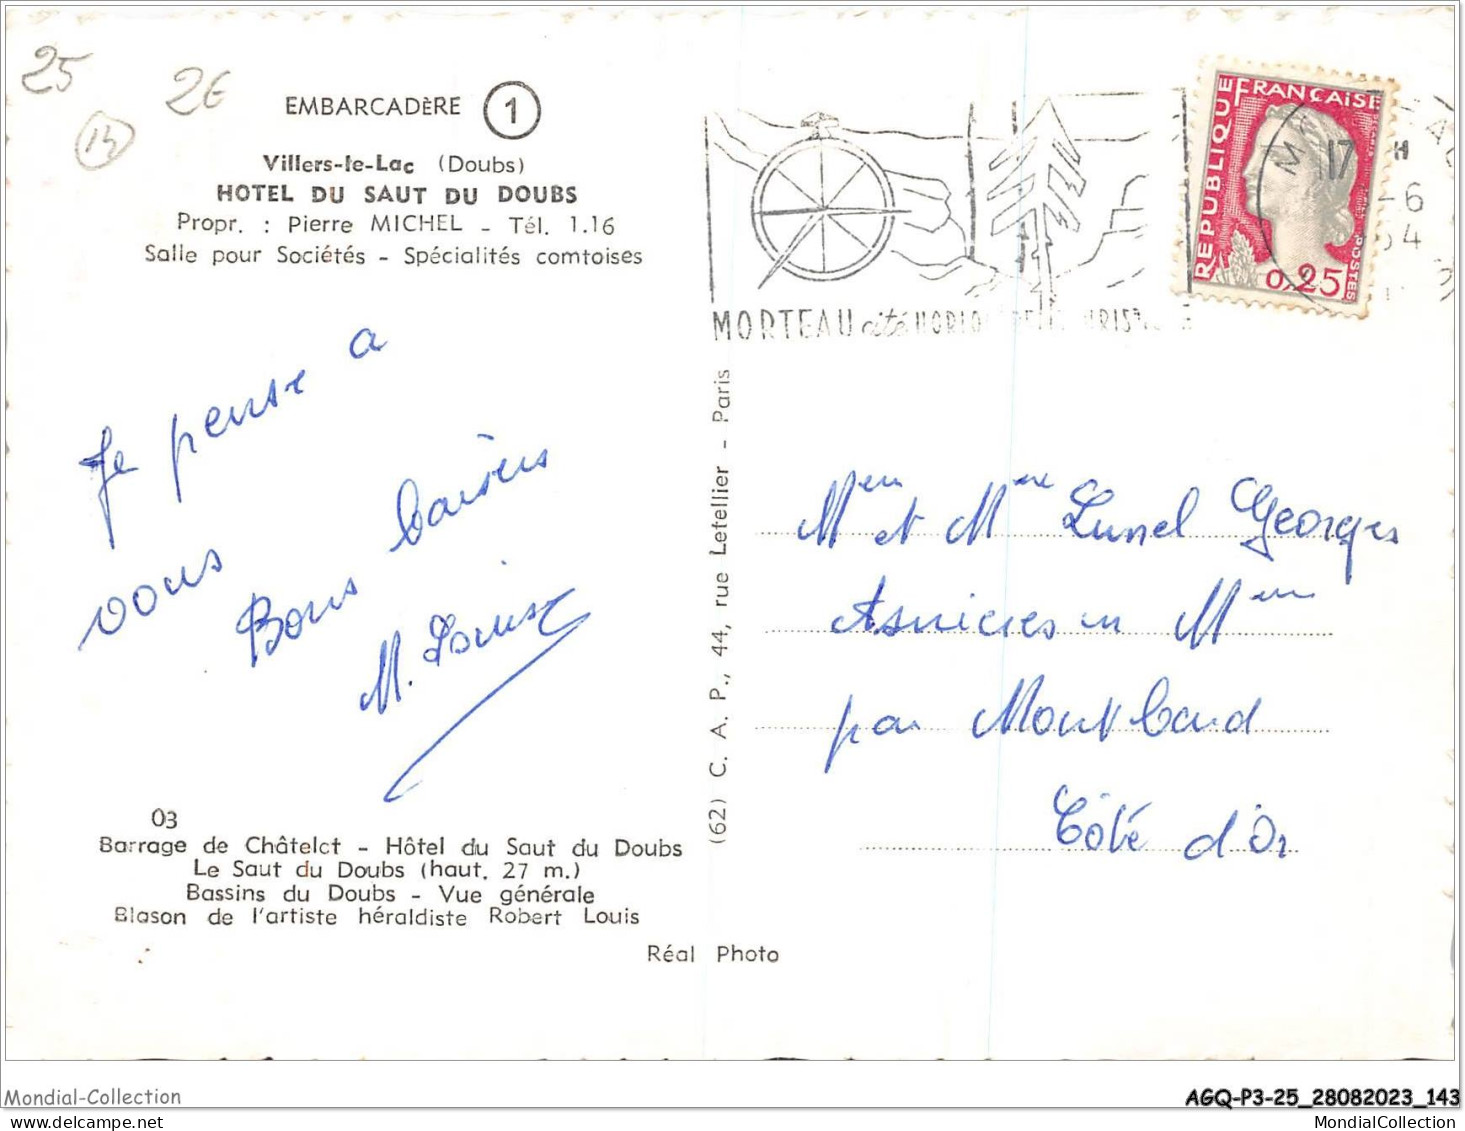 25
2€
EMBARCADÈRE 1
Villers-le-Lac (Doubs)
HOTEL DU SAUT DU DOUBS
Propr. : Pierre MICHEL - Tél. 1.16
Salle pour Sociétés - Spécialités comtoises
Je pense à
vous
Bons baisers
M. Louise
03
Barrage de Châtelot - Hôtel du Saut du Doubs
Le Saut du Doubs (haut. 27 m.)
Bassins du Doubs - Vue générale
Blason de l'artiste héraldiste Robert Louis
Réal Photo
(62) C. A. P., 44, rue Letellier - Paris
MORTEAU cité
RÉPUBLIQUE FRANÇAISE
POSTES
0,25
17 H
-6
Mr et Mme Lunel Georges
Asnières en Mgne
par Montbard
Côte d'Or
Mondial-Collection
AGQ-P3-25_28082023_143
MondialCollection